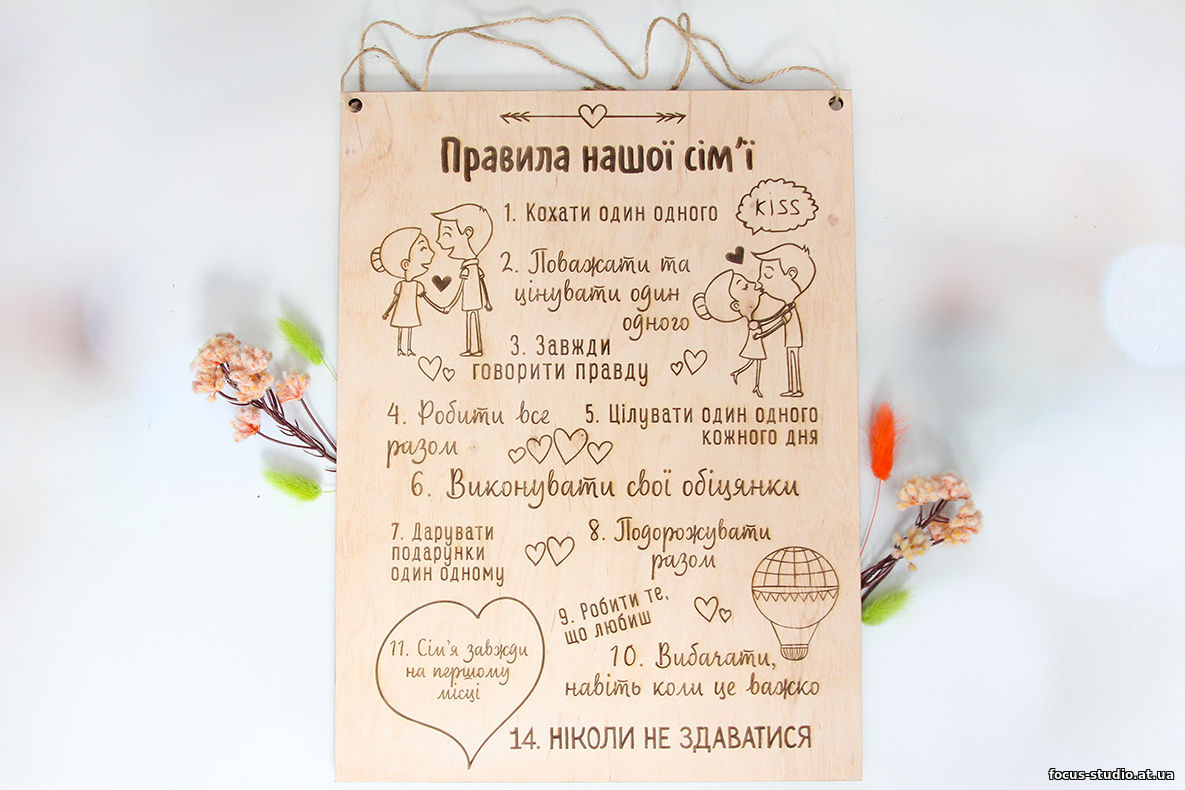 Правила нашої сім'ї
1. Кохати один одного
KISS
2. Поважати та
цінувати один
одного
3. Завжди
говорити правду
4. Робити все
разом
5. Цілувати один одного
кожного дня
6. Виконувати свої обіцянки
7. Дарувати
подарунки
один одному
8. Подорожувати
разом
9. Робити те,
що любиш
10. Вибачати,
навіть коли це важко
11. Сім'я завжди
на першому
місці
14. НІКОЛИ НЕ ЗДАВАТИСЯ
focus-studio.at.ua